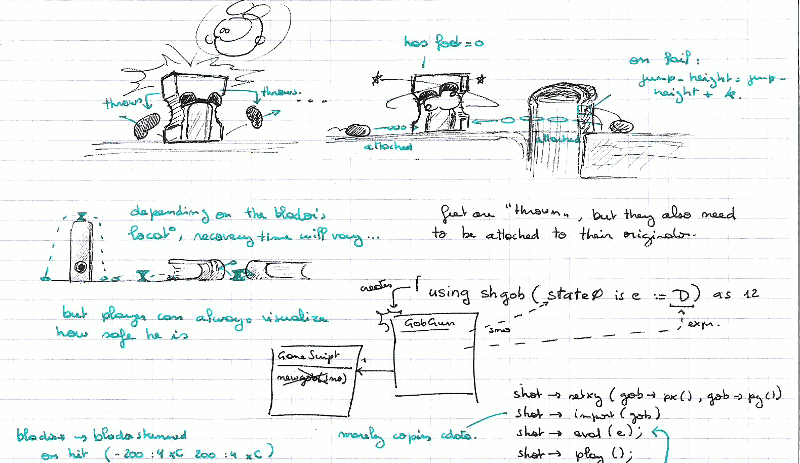 has foot = 0
on fail:
jump-height = jump-
height + k.
throws
throws.
attached
attached
depending on the blador's
locat°, recovery time will vary...
feet are "thrown", but they also need
to be attached to their originator.
but player can always visualize
how safe he is
creates
using shgob (state∅ is e := D) as 12
GobGun
smo
expr.
GameScript
newgob(no)
shot → setxy (gob → px(), gob → py())
shot → import (gob)
merely copies cdata.
shot → eval (e);
shot → play ();
bladors → blador stunned
on hit (-200 :4 x6 200 :4 x6)